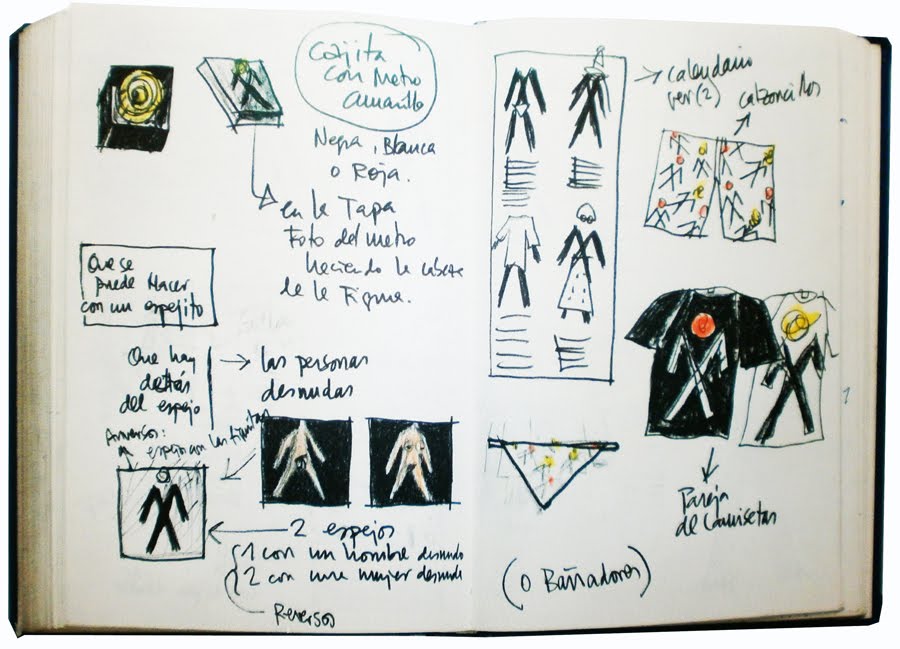 Cajita
con Metro
amarillo
Negra, Blanca
o Roja.
en la Tapa
Foto del metro
haciendo la cabeza
de la Figura.
Que se
puede Hacer
con un espejito
Que hay
detrás
del espejo
las personas
desnudas
Anverso:
espejo con las figuritas
2 espejos
1 con un hombre desnudo
2 con una mujer desnuda
Reverso
calendario
ver (2)
calzoncillos
Pareja
de Camisetas
(o Bañadores)